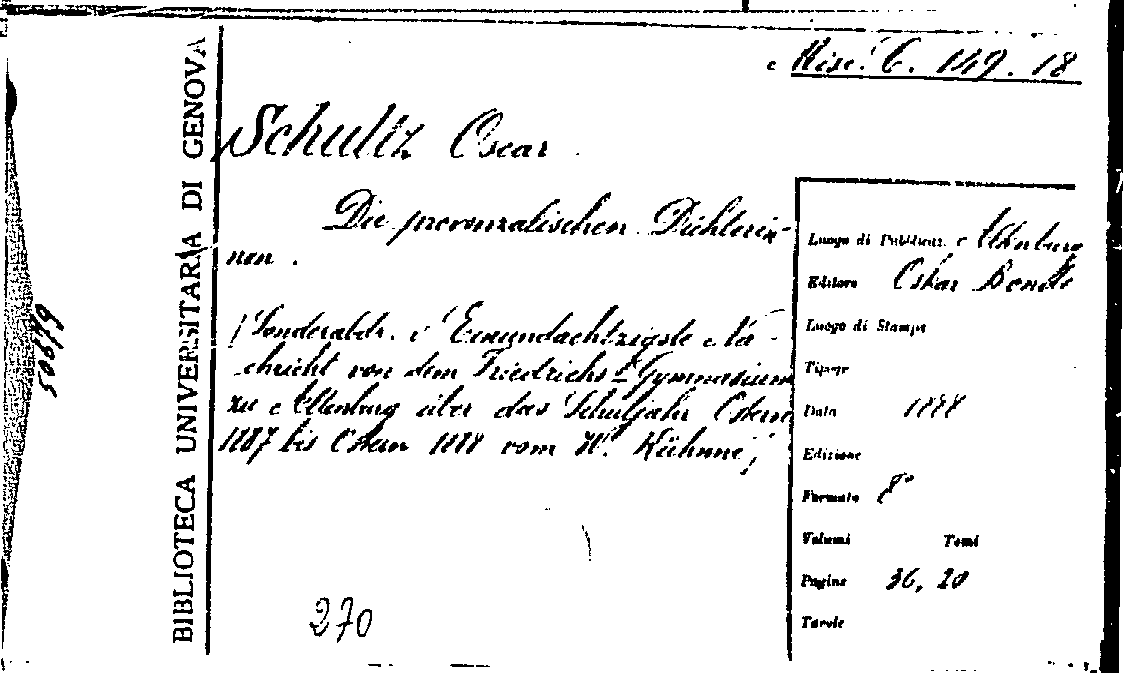 Misc. C. 149. 18
BIBLIOTECA UNIVERSITARIA DI GENOVA
Schultz Oscar
Die provenzalischen Dichterin-
nen.
(Sonderabdr. i Einundachtzigste Na-
chricht von dem Friedrichs-Gymnasium
zu Altenburg über das Schuljahr Ostern
1887 bis Ostern 1888 vom H. Kühne)
270
Luogo di Pubblicaz. Altenburg
Editore Oskar Bonde
Luogo di Stampa
Tipogr
Data 1888
Edizione
Formato 8°
Volumi Tomi
Pagine 36, 20
Tavole